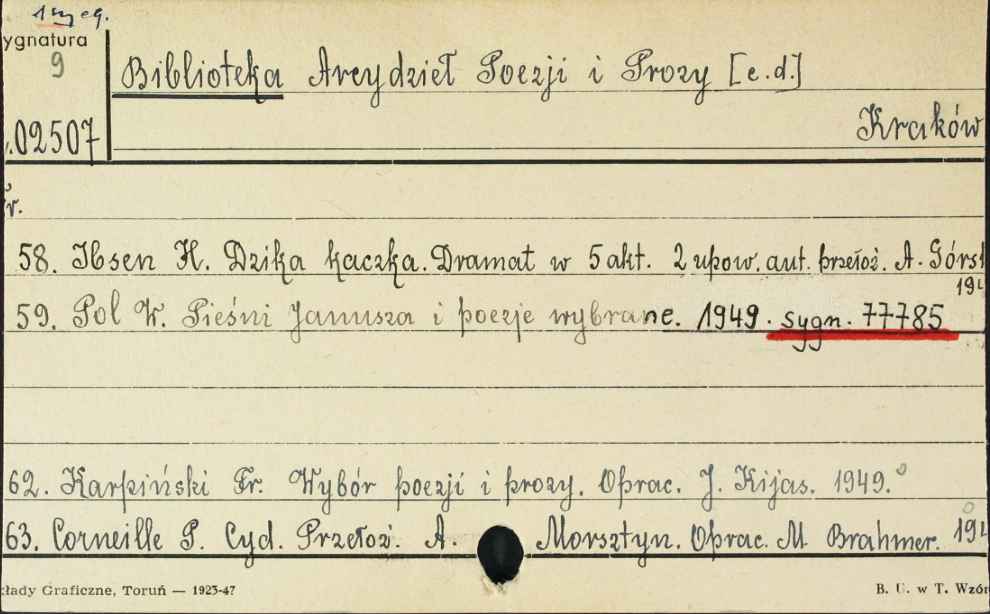 1 egz.
ygnatura
9
Biblioteka Arcydzieł Poezji i Prozy [c.d.]
02507
Kraków
r.
58. Ibsen H. Dzika kaczka. Dramat w 5 akt. 2 upow. aut. przełoż. A. Górsk
194
59. Pol W. Pieśni Janusza i poezje wybrane. 1949. sygn. 77785
62. Karpiński Fr. Wybór poezji i prozy. Oprac. J. Kijas. 1949.
63. Corneille P. Cyd. Przełoż. A. Morsztyn. Oprac. M. Brahmer. 194
kłady Graficzne, Toruń — 1923-47
B. U. w T. Wzór